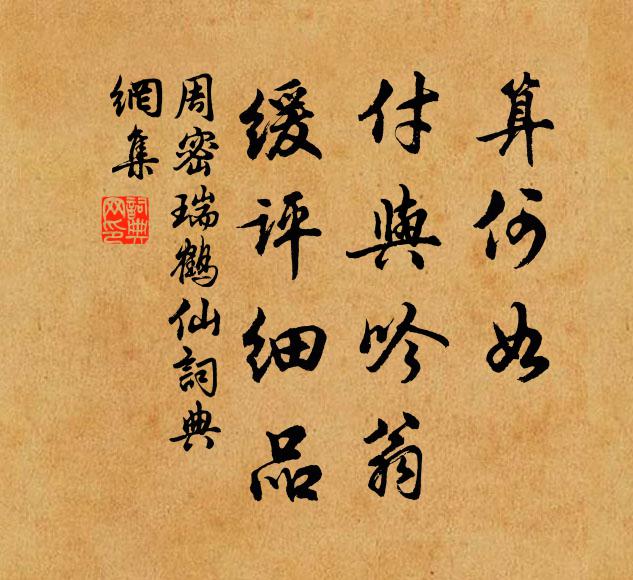 算何如
付與吟翁
緩評細品
周密瑞鶴仙詞典
網集
詞典
网印